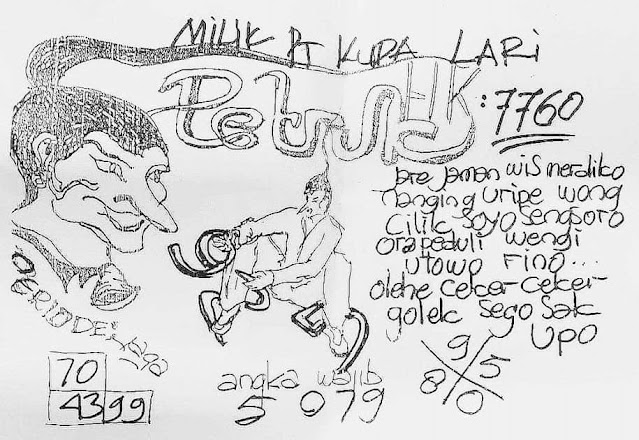 MILIK PT KUDA LARI
Petruk HK : 7760
jare jaman wis merdiko
nanging uripe wong
cilik soyo sengsoro
ora peduli wengi
utowo rino...
olehe ceker-ceker-
golek sego sak
upo
PERIODE:
70
4399
angka wajib
5 0 7 9
9 5
8 0